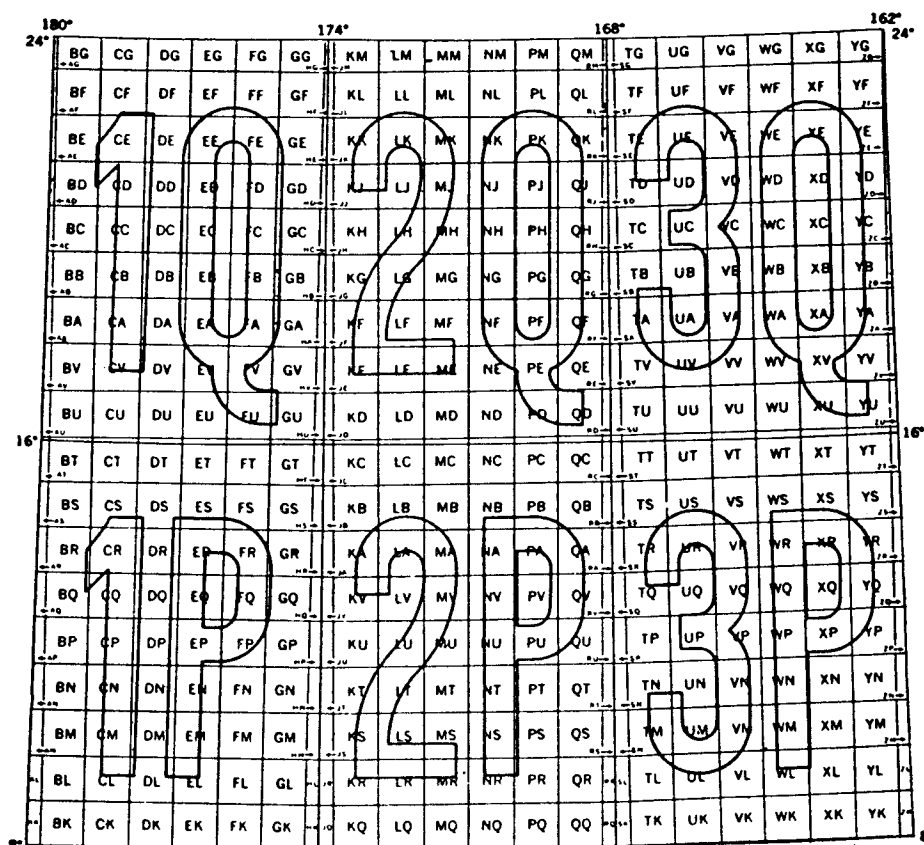 180° 174° 168° 162°
24° BG CG DG EG FG GG KM LM MM NM PM QM TG UG VG WG XG YG 24°
BF CF DF EF FF GF KL LL ML NL PL QL TF UF VF WF XF YF
BE CE DE EE FE GE KK LK MK NK PK QK TE UE VE WE XE YE
BD CD DD ED FD GD KJ LJ MJ NJ PJ QJ TD UD VD WD XD YD
BC CC DC EC FC GC KH LH MH NH PH QH TC UC VC WC XC YC
BB CB DB EB FB GB KG LG MG NG PG QG TB UB VB WB XB YB
BA CA DA EA FA GA KF LF MF NF PF QF TA UA VA WA XA YA
BV CV DV EV FV GV KE LE ME NE PE QE TV UV VV WV XV YV
BU CU DU EU FU GU KD LD MD ND PD QD TU UU VU WU XU YU
1Q 2Q 3Q
16° 16°
BT CT DT ET FT GT KC LC MC NC PC QC TT UT VT WT XT YT
BS CS DS ES FS GS KB LB MB NB PB QB TS US VS WS XS YS
BR CR DR ER FR GR KA LA MA NA PA QA TR UR VR WR XR YR
BQ CQ DQ EQ FQ GQ KV LV MV NV PV QV TQ UQ VQ WQ XQ YQ
BP CP DP EP FP GP KU LU MU NU PU QU TP UP VP WP XP YP
BN CN DN EN FN GN KT LT MT NT PT QT TN UN VN WN XN YN
BM CM DM EM FM GM KS LS MS NS PS QS TM UM VM WM XM YM
BL CL DL EL FL GL KR LR MR NR PR QR TL UL VL WL XL YL
BK CK DK EK FK GK KQ LQ MQ NQ PQ QQ TK UK VK WK XK YK
1P 2P 3P